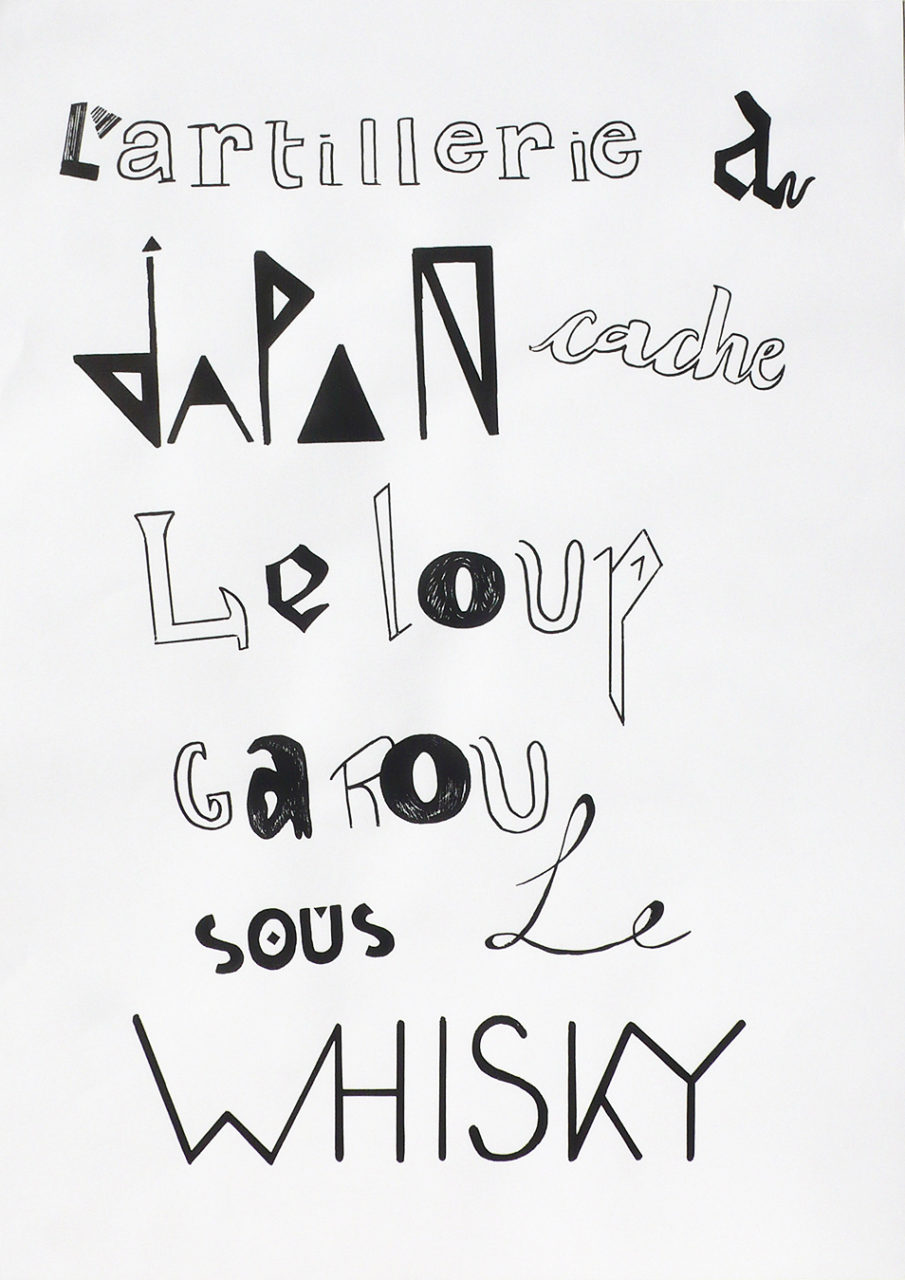 L'artillerie du
jAPAN cache
Le loup
GaROU
sous Le
WHISKY